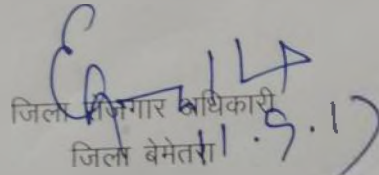 जिला रोजगार अधिकारी
जिला बेमेतरा 11.9.17